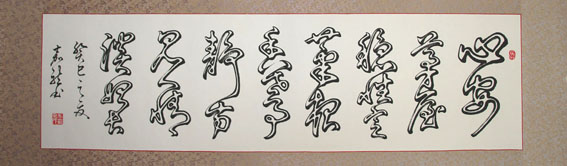 心安
茅屋
穩性定
菜根
香世事
靜方
見人情
淡始長
癸巳之夏